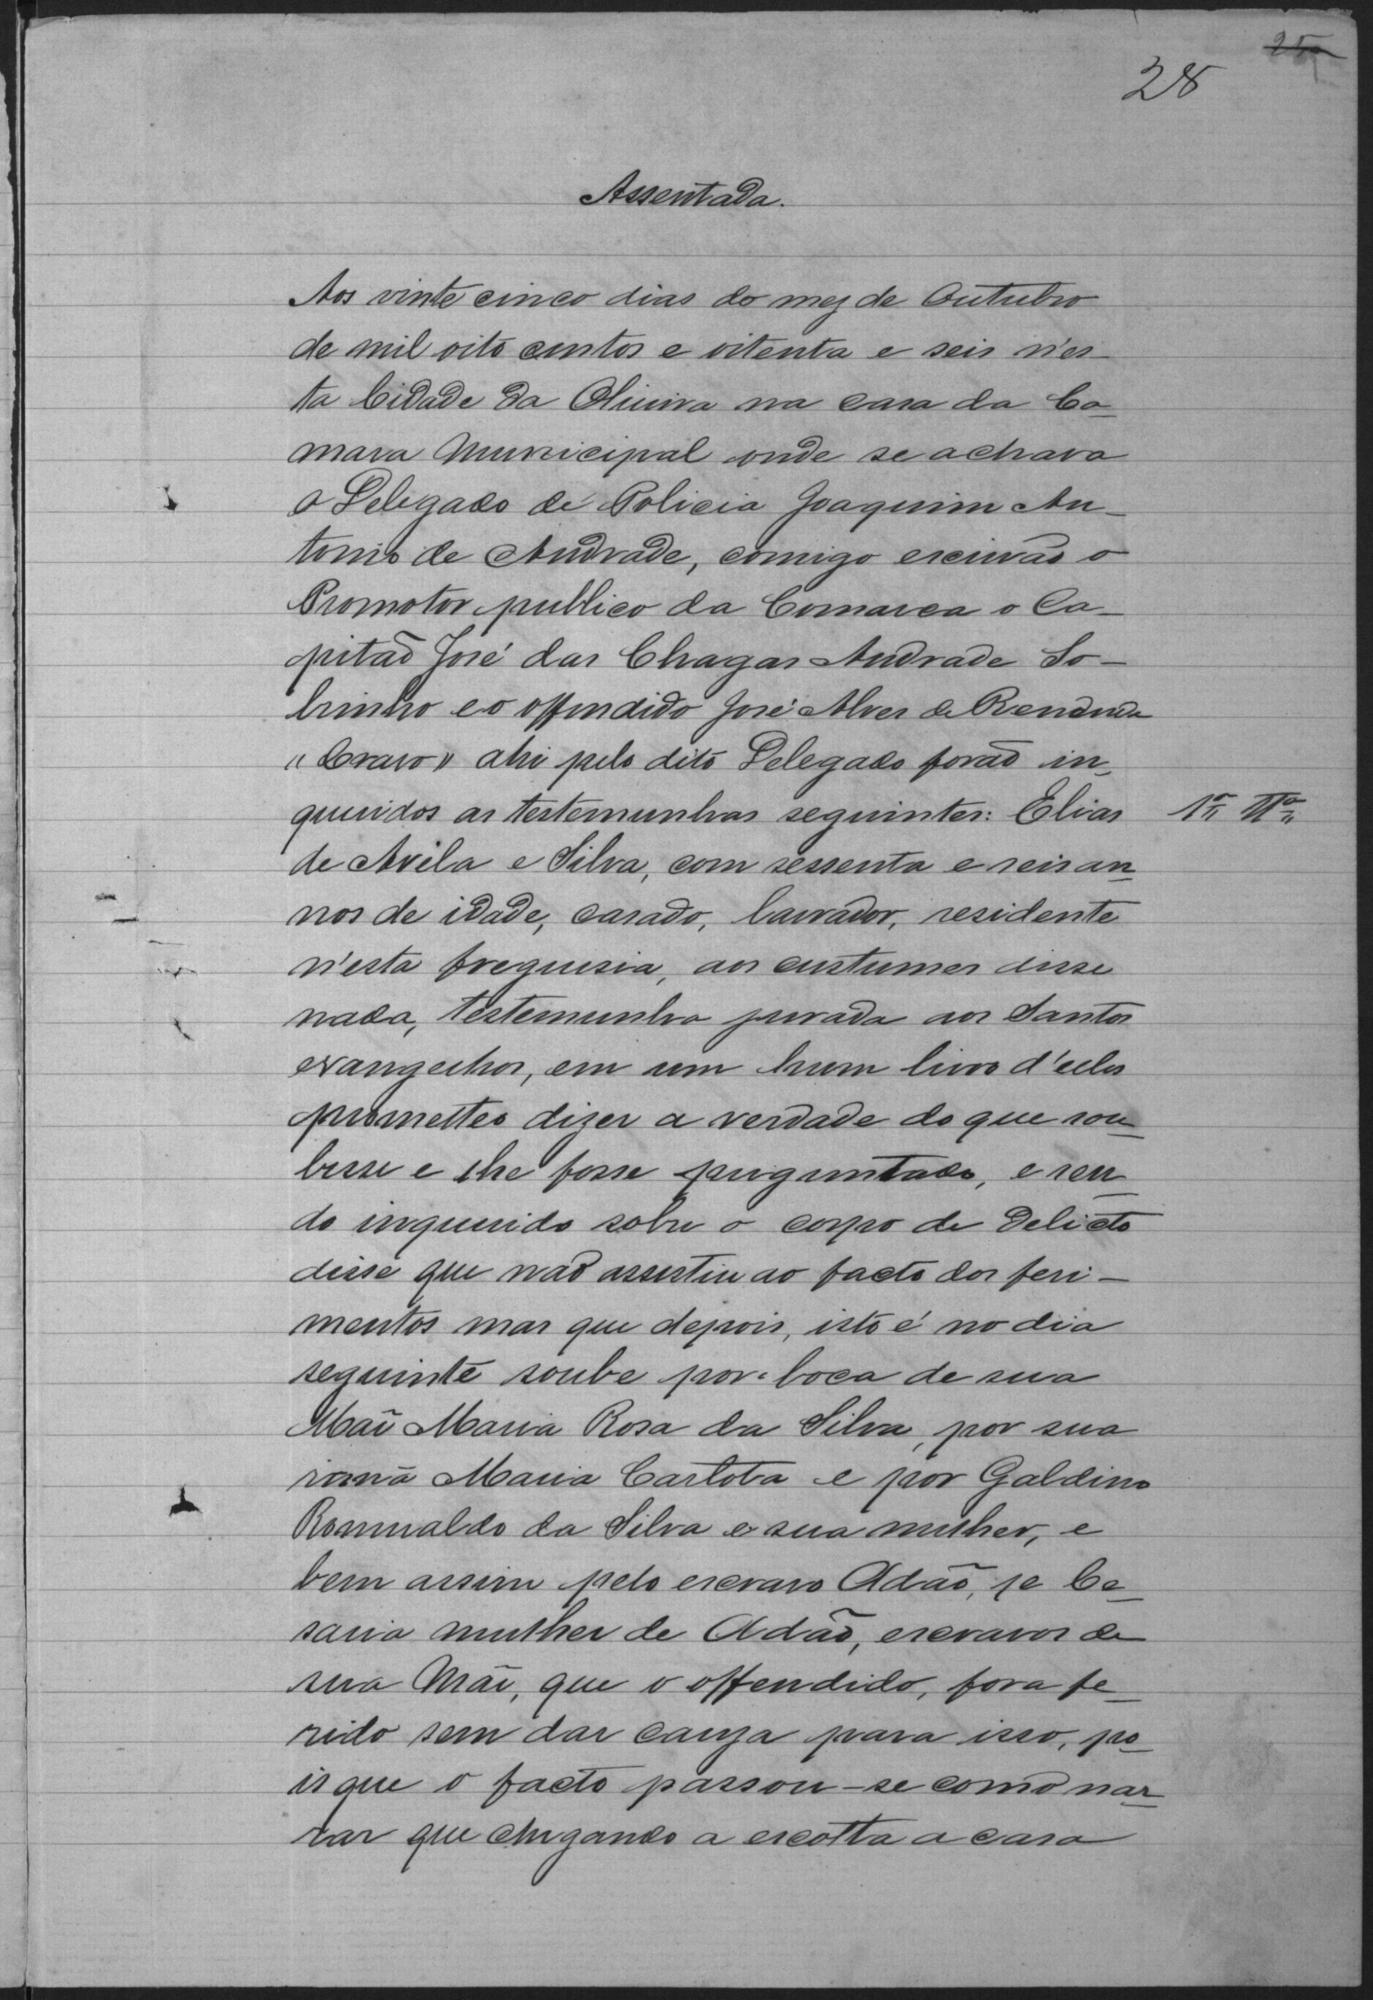 25
28
Assentada.
Aos vinte cinco dias do mez de Outubro
de mil oito centos e oitenta e seis n'es-
ta Cidade da Oliveira na casa da Ca-
mara Municipal onde se achava
o Delegado de Policia Joaquim An-
tonio de Andrade, comigo escrivão o
Promotor publico da Comarca o Ca-
pitão José das Chagas Andrade So-
brinho e o offendido José Alves de Rezende
"Cravo" ahi pelo dito Delegado forão in-
queridos as testemunhas seguintes: Elias
1ª Tª
de Avila e Silva, com sessenta e seis an-
nos de idade, casado, lavrador, residente
n'esta freguesia, aos custumes disse
nada, testemunha jurada aos Santos
evangelhos, em um hum livro d'elles
prometteo dizer a verdade do que sou-
besse e lhe fosse preguntado, e sen-
do inquerido sobre o corpo de Delicto
disse que não assistiu ao facto dos feri-
mentos mas que depois, isto é no dia
seguinte soube por boca de sua
Mãi Maria Rosa da Silva, por sua
irmã Maria Carlota e por Galdino
Romualdo da Silva e sua mulher, e
bem assim pelo escravo Adão, e Ce-
saria mulher de Adão, escravos de
sua Mãi, que o offendido, fora fe-
rido sem dar causa para isso, po-
is que o facto passou-se como nar-
rar que chegando a escolta a casa